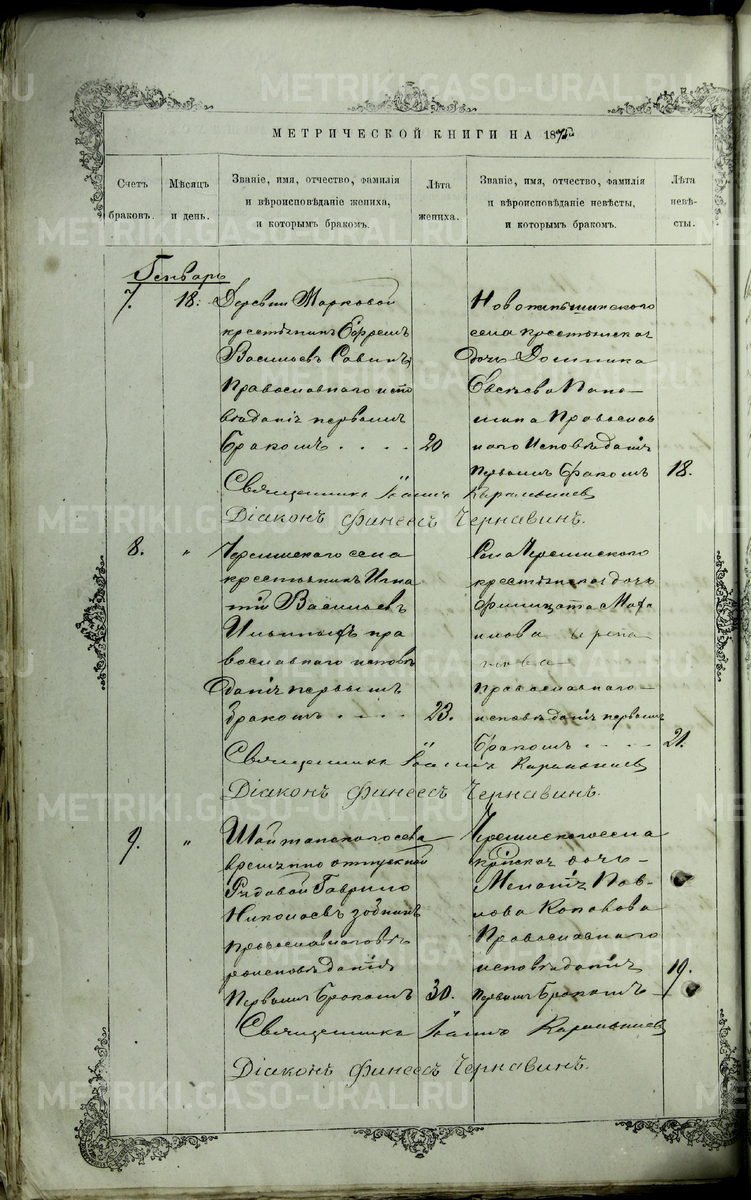 МЕТРИЧЕСКОЙ КНИГИ НА 187
Счетъ браковъ.
Мѣсяцъ и день.
Званіе, имя, отчество, фамилія и вѣроисповѣданіе жениха, и которымъ бракомъ.
Лѣта жениха.
Званіе, имя, отчество, фамилія и вѣроисповѣданіе невѣсты, и которымъ бракомъ.
Лѣта невѣсты.
Генварь
7. 18.
Деревни Марковой
крестьянинъ Ефремъ
Васильевъ Савинъ
Православнаго испо
вѣданія первымъ
Бракомъ . . . . 20
села крестьянская
дочь Домника
Православ
наго Исповѣданія
первымъ бракомъ 18.
Священникъ Іоаннъ Карамышев
Діаконъ Финеесъ Чернавинъ.
8. „
Черемисскаго села
крестьянинъ Игна
тій Васильевъ
пра
вославнаго исповѣ
данія первымъ
бракомъ . . . . 23.
Села Черемисскаго
крестьянская дочь
Филицата
Православнаго
исповѣданія первымъ
Бракомъ . . . . 21.
Священникъ Іоаннъ Карамышев
Діаконъ Финеесъ Чернавинъ.
9. „
Шайтанскаго села
временно отпускной
Рядовой Гаврило
Николаевъ
православнаго вѣ
роисповѣданія
Первымъ Бракомъ 30.
Черемисскаго села
дочь
Меланія Пав
лова
Православнаго
исповѣданія
первымъ Бракомъ 19.
Священникъ Іоаннъ Карамышев
Діаконъ Финеесъ Чернавинъ.
METRIKI.GASO-URAL.RU